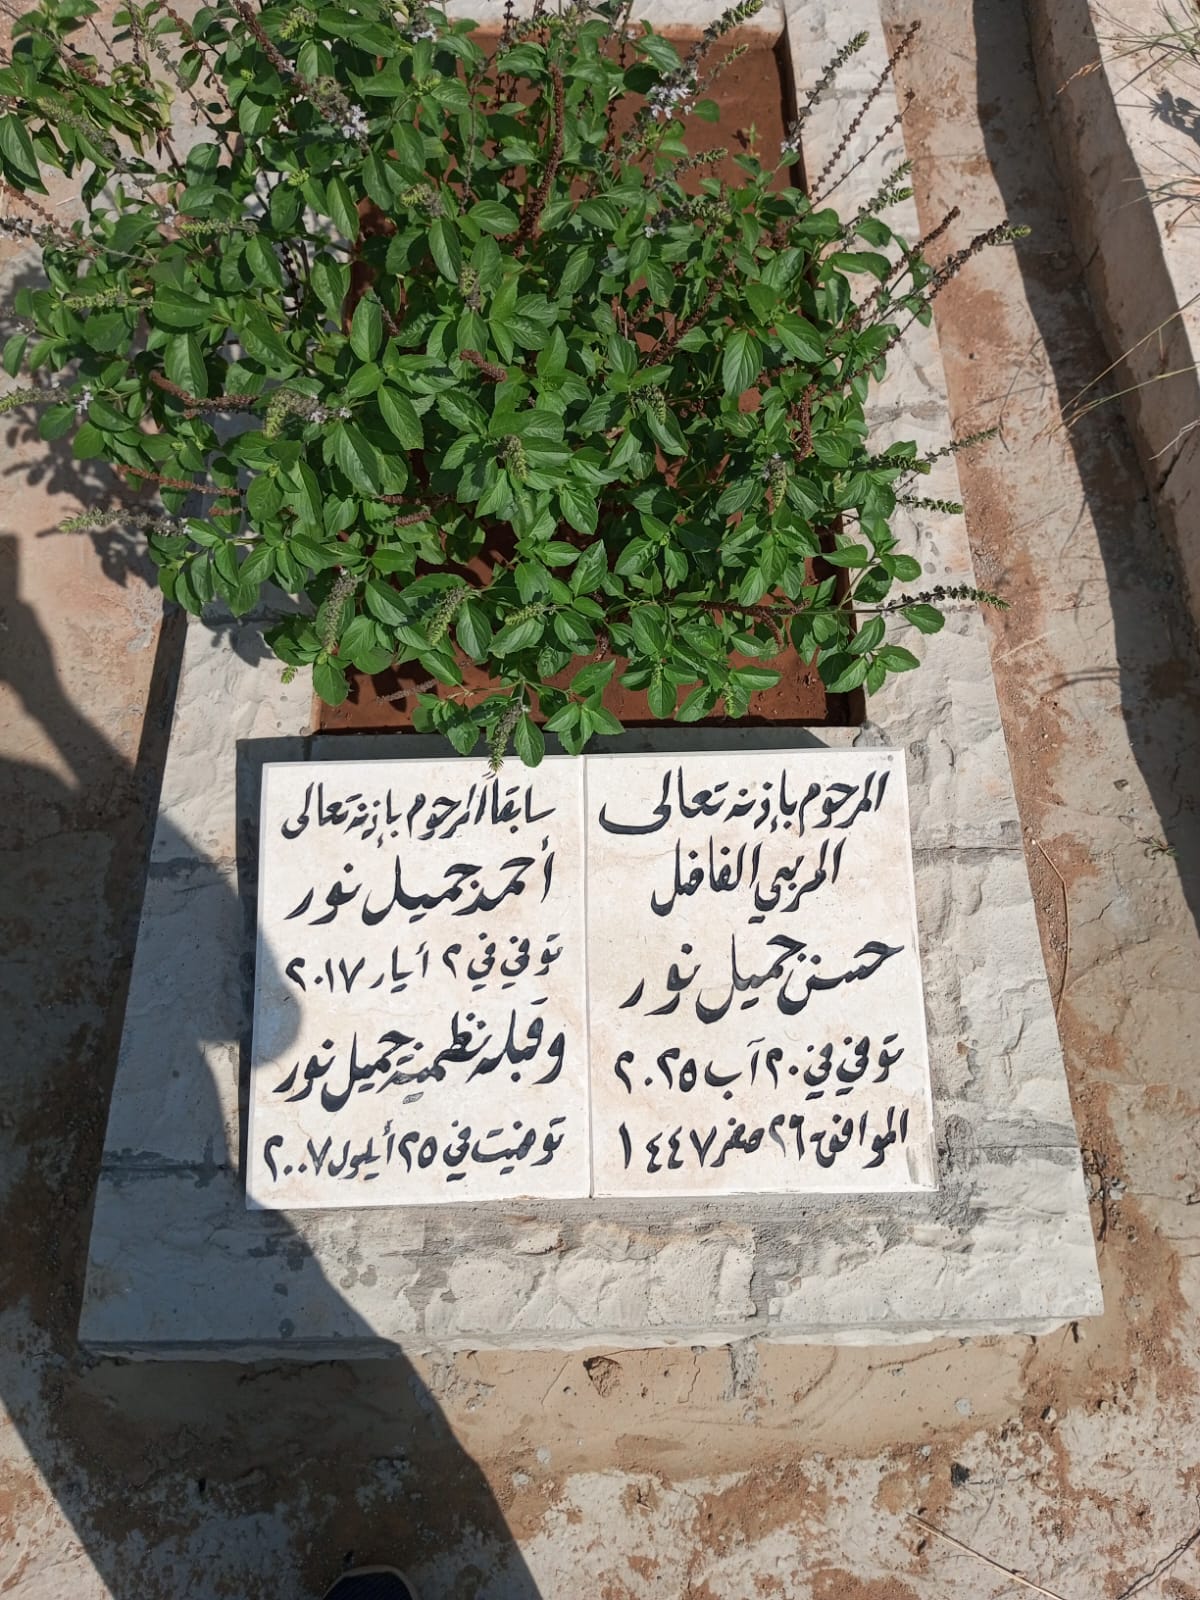 المرحوم بإذنه تعالى
المربي الفاضل
حسن جميل نور
توفي في ٢٠ آب ٢٠٢٥
الموافق ٢٦ صفر ١٤٤٧
سابقاً المرحوم بإذنه تعالى
أحمد جميل نور
توفي في ٢ أيار ٢٠١٧
وقبله نظمية جميل نور
توفيت في ٢٥ أيلول ٢٠٠٧